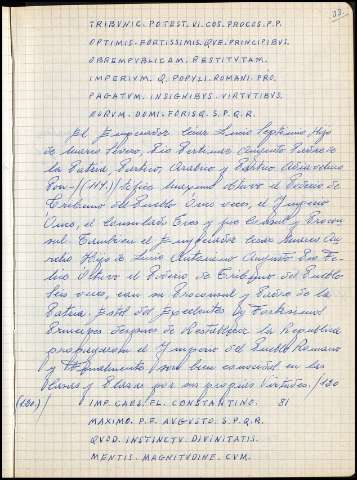 33.
TRIBVNIC. POTEST. VI. COS. PROCOS. P.P.
OPTIMIS. FORTISSIMIS. QVE. PRINCIPIBVS.
OBREMPVBLICAM. RESTITVTAM.
IMPERIVM. Q. POPVLI. ROMANI. PRO.
PAGATVM. INSIGNIBVS. VIRTVTIBVS.
EORVM. DOMI. FORISQ. S.P.Q.R.
El Emperador Cesar Lucio Septimio, Hijo
de Marco Pio Pertinax Augusto Padre de
la Patria, Partico, Arabico y Partico Adiavenico
Pon-/(119.)/tifice maximo obtuvo el Poderio de
Tribuno del Pueblo Once veces, el Imperio
Once, el Consulado Tres y Procon-
sul. Tambien el Emperador Cesar Marco Au-
relio Hijo de Lucio Antonino Augusto Pio Fe-
liz Obtuvo el Poderio de Tribuno del Pueblo
Seis veces, Proconsul y Padre de la
Patria. y
Principes de Restablecer la Republica
propagaron el Imperio del Pueblo Romano
y Igualmente son bien en las
y por sus propias Virtudes. /120
(120.)/ IMP. CAES. FL. CONSTANTINO. 31
MAXIMO. P.F. AVGVSTO. S.P.Q.R.
QVOD. INSTINCTV. DIVINITATIS.
MENTIS. MAGNITVDINE. CVM.